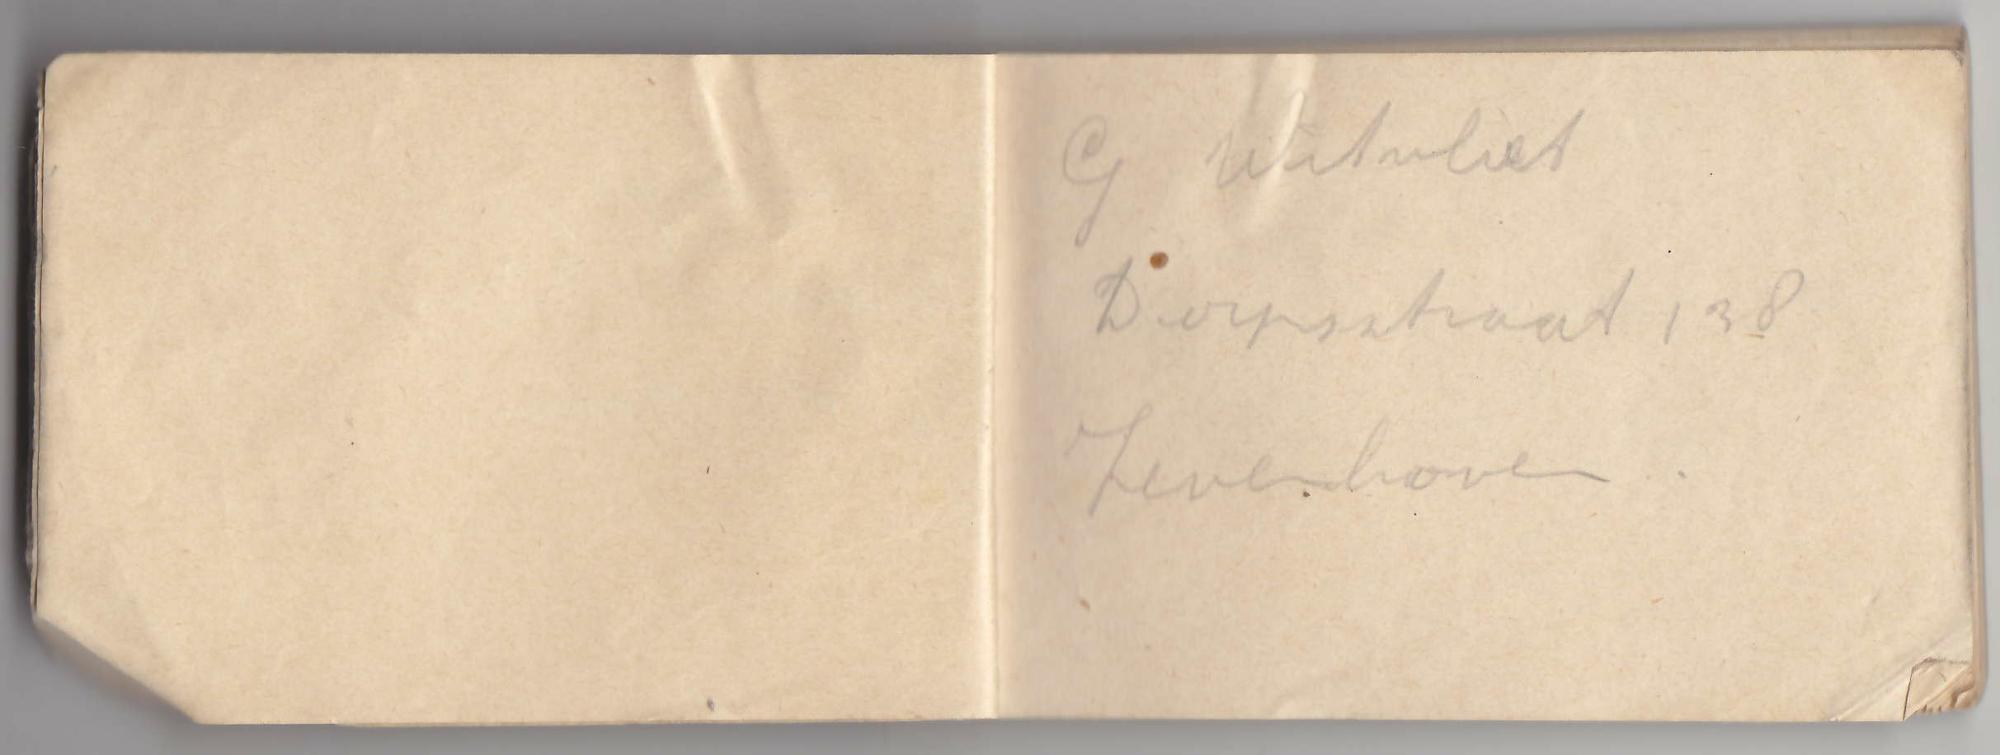 G Witvliet
Dorpsstraat 138
Zevenhoven.